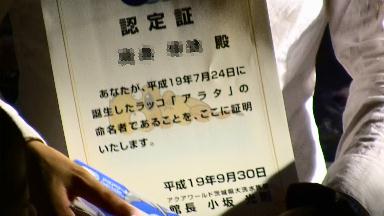 認定証
殿
あなたが、平成19年7月24日に
誕生したラッコ「アラタ」の
命名者であることを、ここに証明
いたします。
平成19年9月30日
アクアワールド茨城県大洗水族館
館長 小坂